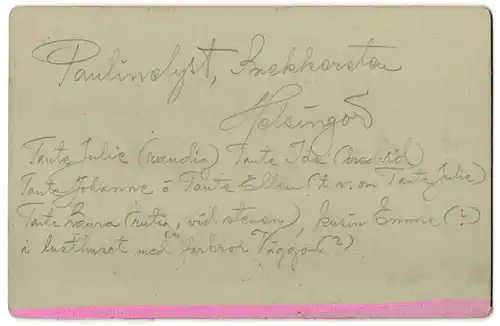 Paulinelyst, Bakkarstan
Helsingör
Tante Julie (randig) Tante Ida (bredvid)
Tante Johanne o Tante Ellen (t.v. om Tante Julie)
Tante Laura (rutig, vid stenen), kusin Emme (?)
i lusthuset med en farbror Viggo (?)